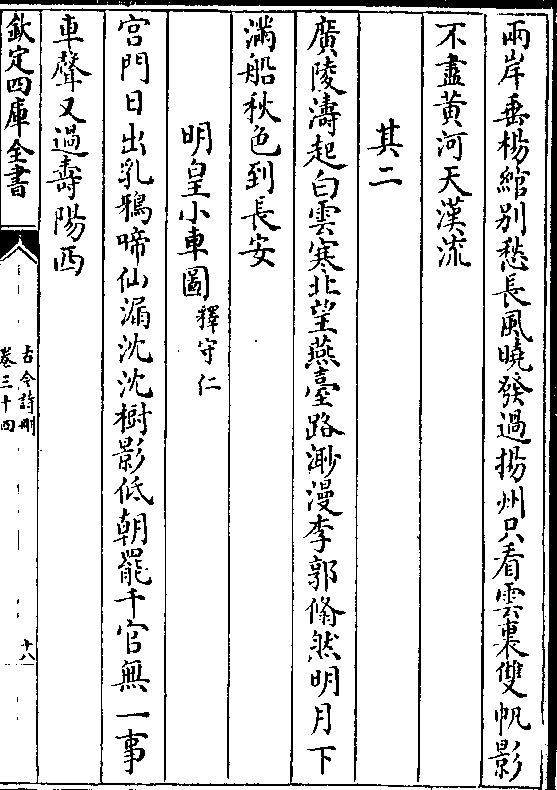 兩岸垂楊綰别愁長風曉發過揚州只看雲裏雙帆影
不盡黃河天漢流
其二
廣陵濤起白雲寒北望燕臺路渺漫李郭翛然明月下
滿船秋色到長安
明皇小車圖 釋守仁
宮門日出乳鴉啼仙漏沈沈樹影低朝罷千官無一事
車聲又過壽陽西
欽定四庫全書
古今詩刪
卷三十四
十八